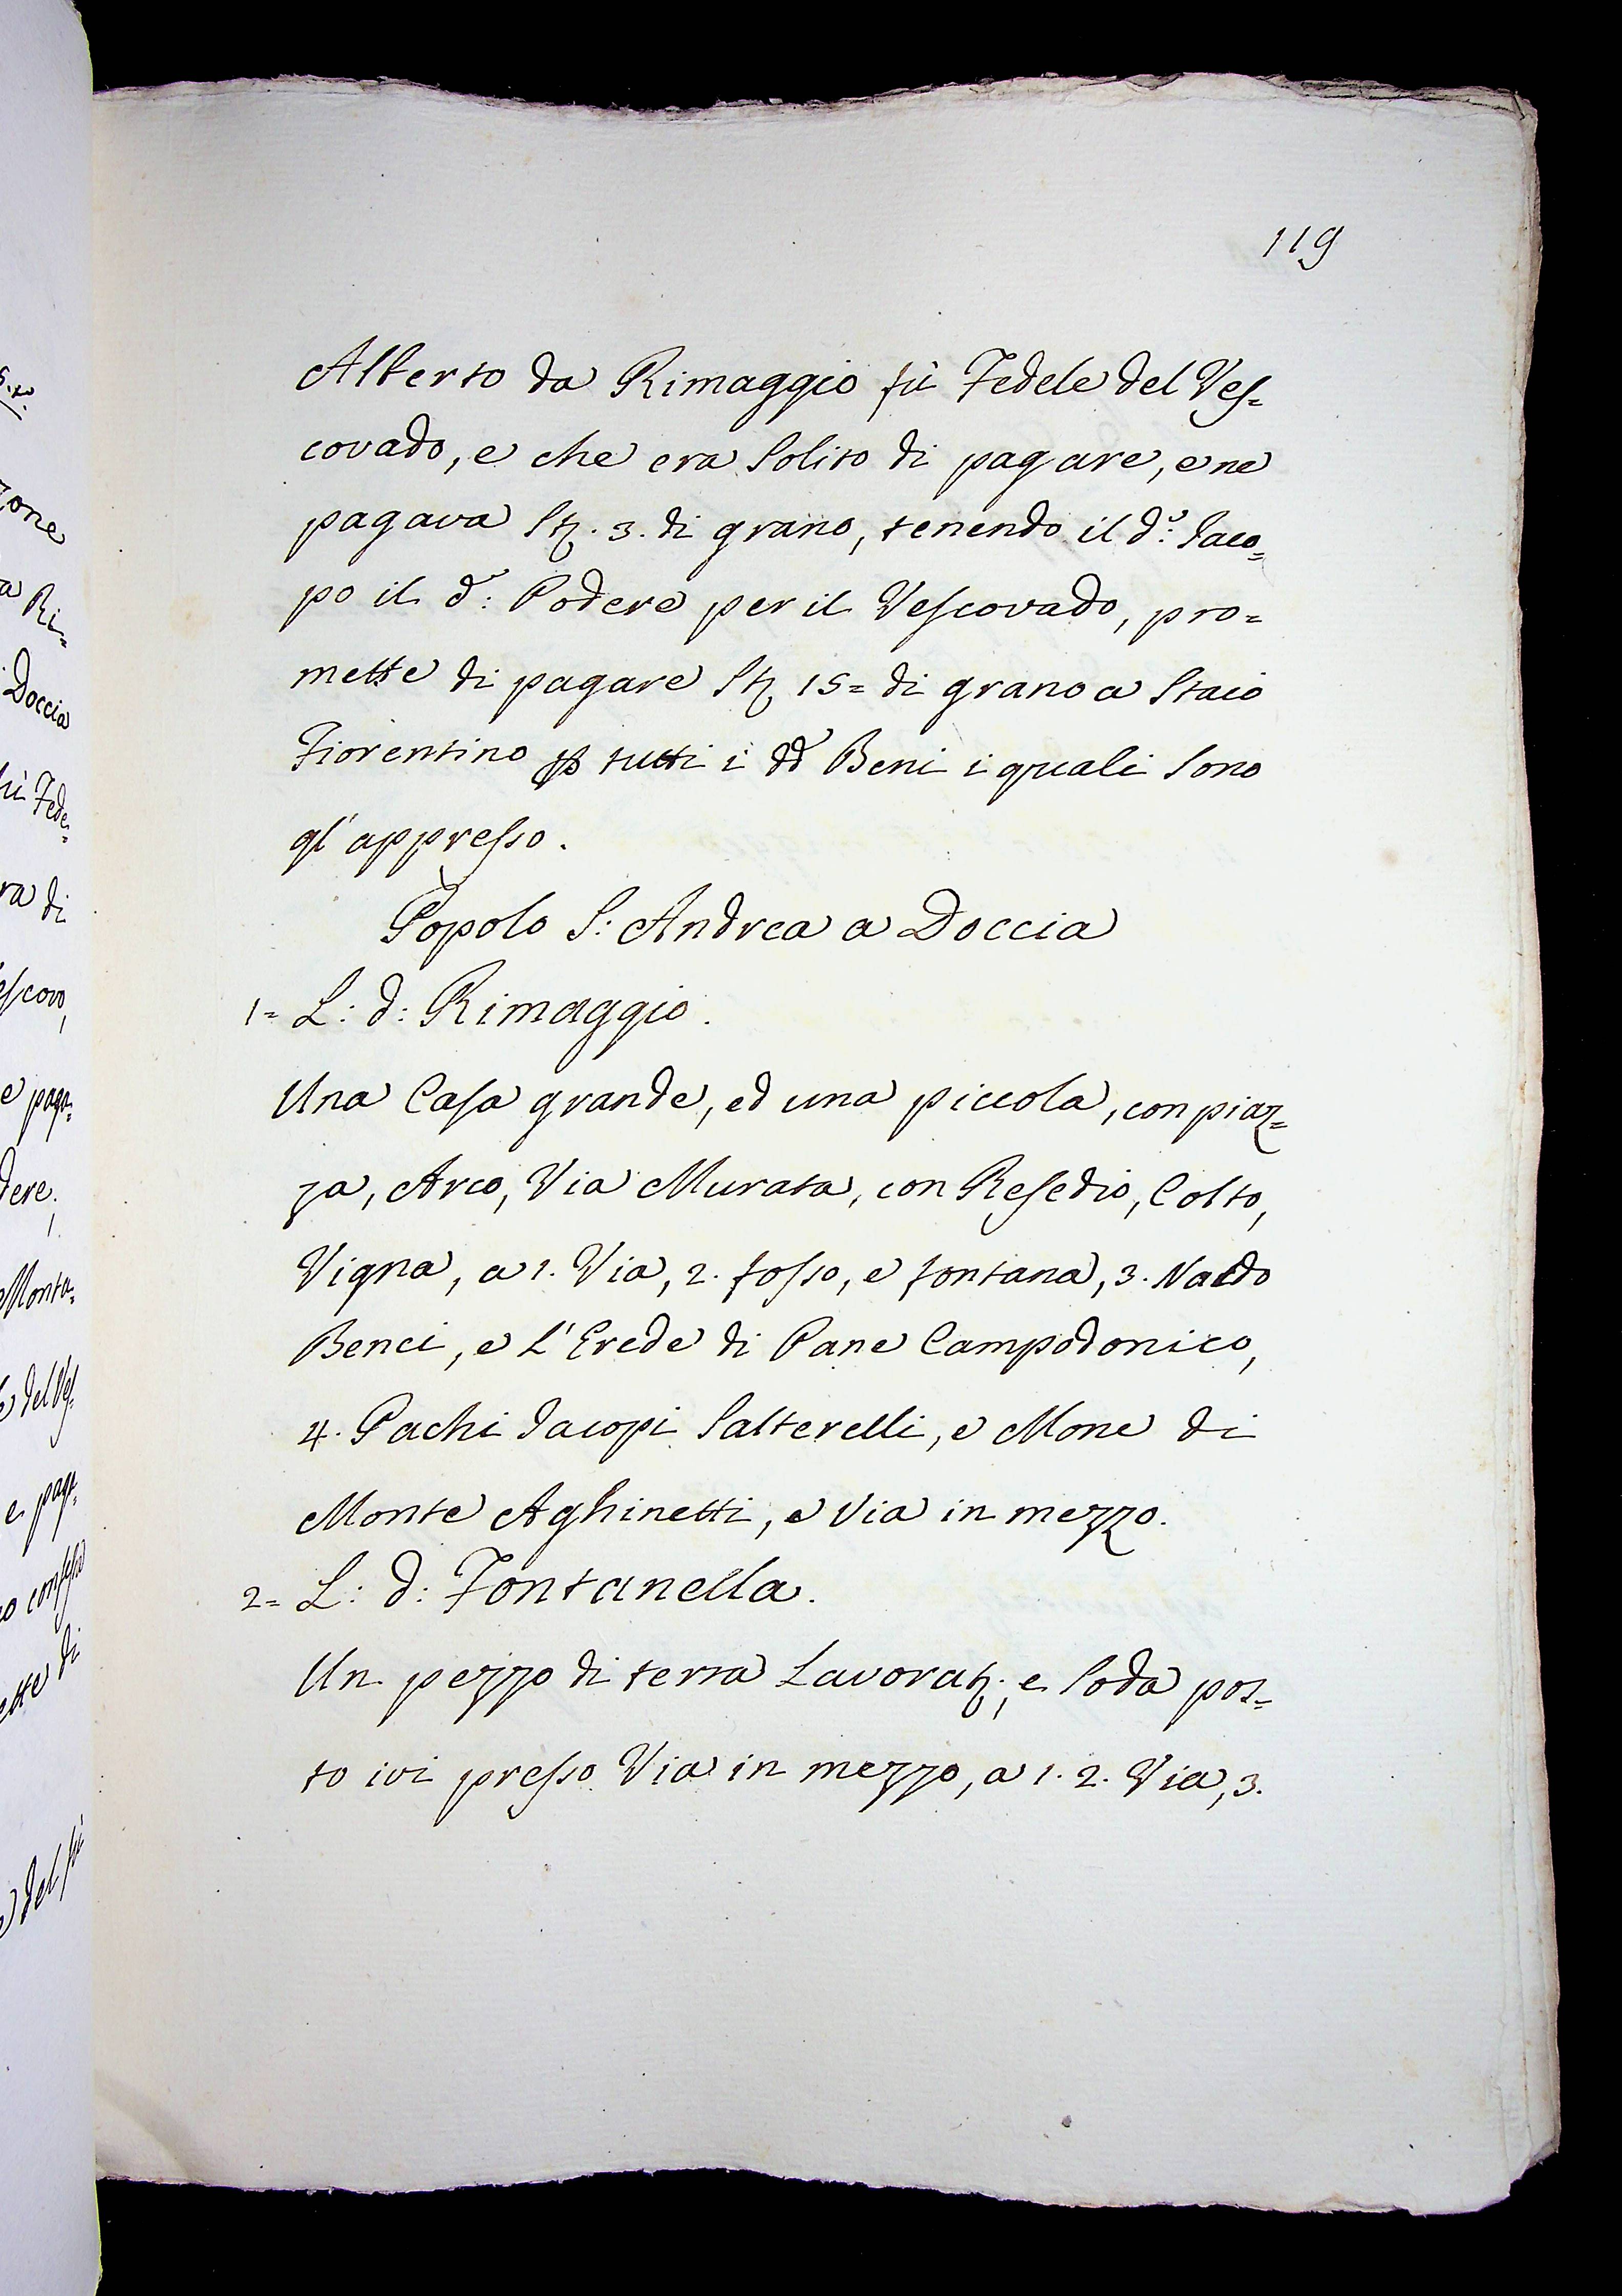 119
Alberto da Rimaggio fù Fedele del Ves=
covado, e che era solito di pagare, e ne
pagava St. 3. di grano, tenendo il d.º Jaco=
po il d.º Podere per il Vescovado, pro=
mette di pagare St. 15= di grano a Staio
Fiorentino p tutti i dd. Beni i quali sono
gl'appresso.
Popolo S: Andrea a Doccia
1= L: d: Rimaggio.
Una Casa grande, ed una piccola, con piaz=
za, Arco, Via Murata, con Resedio, Colto,
Vigna, a 1. Via, 2. fosso, e fontana, 3. Naldo
Benci, e L'Erede di Pane Campodonico,
4. Pachi Jacopi Salterelli, e Mone di
Monte Aghinetti, e Via in mezzo.
2= L: d: Fontanella.
Un pezzo di terra Lavorat:, e soda pos=
to ivi presso Via in mezzo, a 1. 2. Via, 3.
zone
a Ri=
Doccia
fù Fede=
ra di
escovo,
e paga=
dere,
Monta=
del Ves=
e paga=
ette di
del